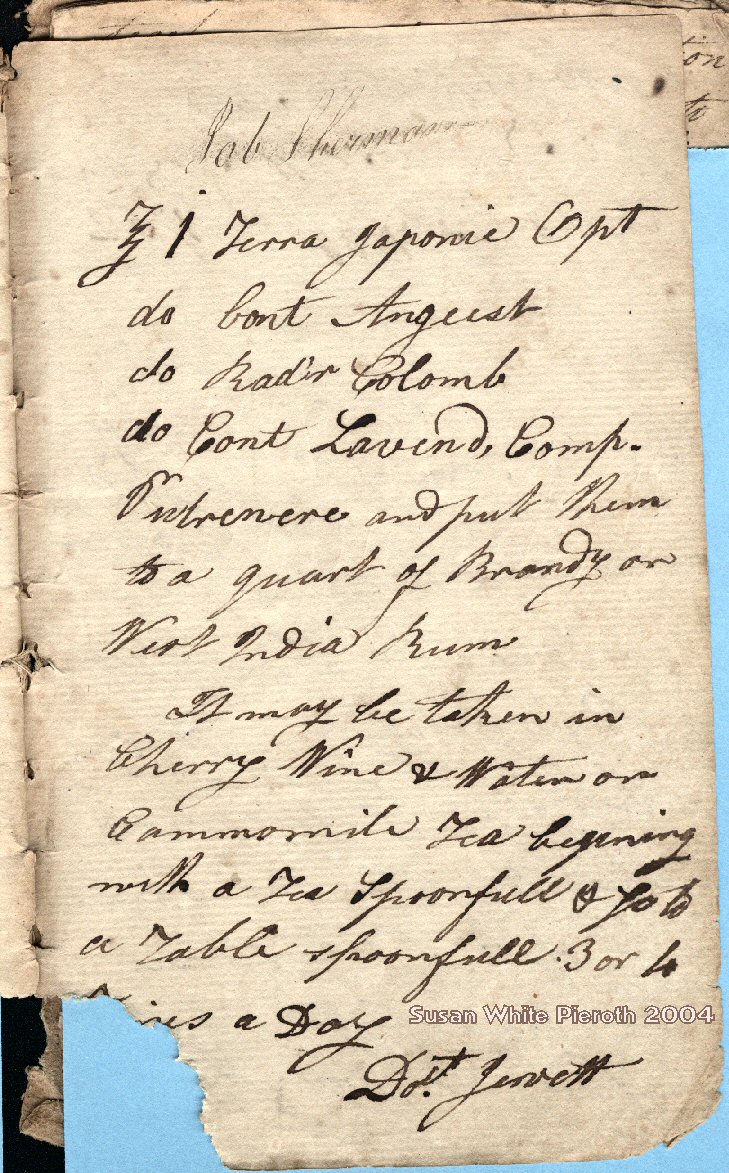 Job Sherman
℥ i Terra Japonic Opt
do Cont Angust
do Rad'x Colomb
do Cont Lavend, Comp.
Pulverere and put them
to a quart of Brandy or
West India Rum
It may be taken in
Cherry Wine & Water or
Cammomile Tea begining
with a Tea Spoonfull & go to
a Table spoonfull 3 or 4
a Day
Susan White Pieroth 2004
Doct. Jewett
ton
to